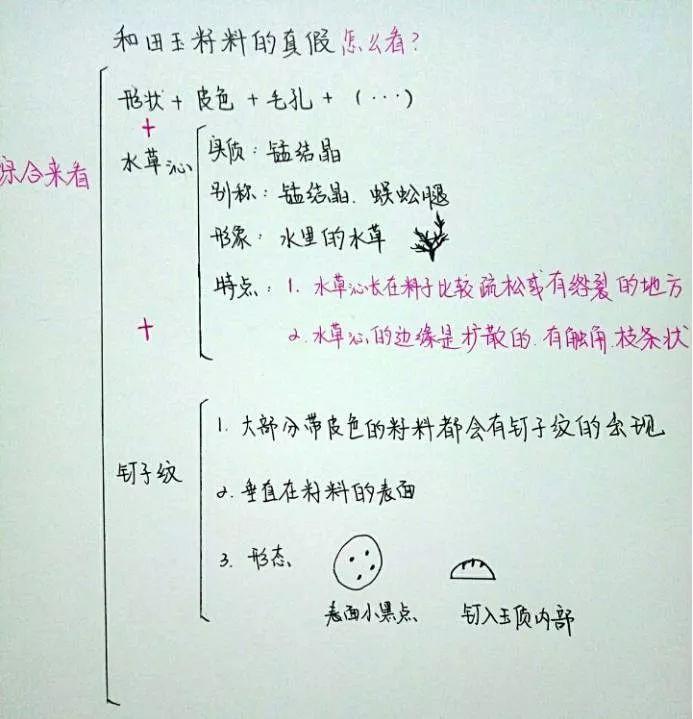 和田玉籽料的真假怎么看?
形状 + 皮色 + 毛孔 + (···)
+
综合来看
水草沁
实质: 锰结晶
别称: 锰结晶. 蜈蚣腿
形象: 水里的水草
特点: 1. 水草沁长在料子比较疏松或有绺裂的地方
2. 水草沁的边缘是扩散的.有触角.枝条状
+
钉子纹
1. 大部分带皮色的籽料都会有钉子纹的出现
2. 垂直在籽料的表面
3. 形态
表面小黑点
钉入玉质内部